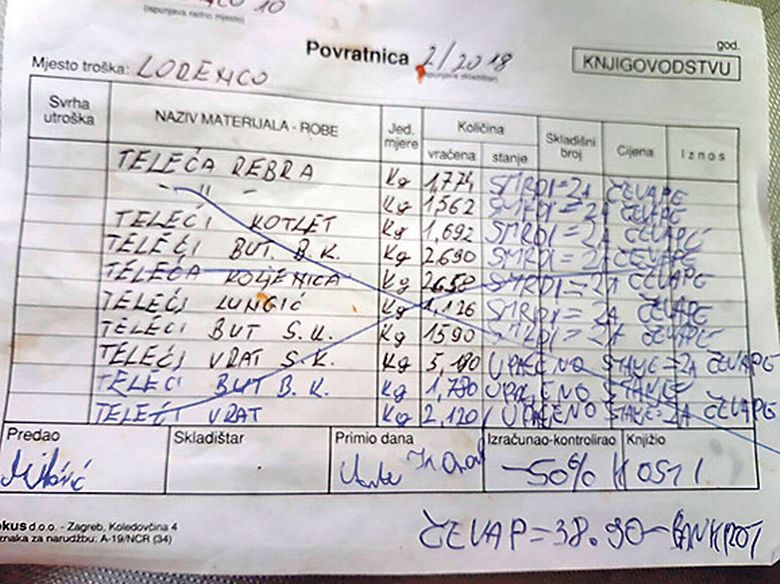 10
(ispunjava radno mjesto)
Povratnica 2/2018 god.
(ispunjava skladištar)
KNJIGOVODSTVU
Mjesto troška: LORENCO
Svrha utroška NAZIV MATERIJALA - ROBE Jed. mjere Količina vraćena stanje Skladišni broj Cijena Iznos
TELEĆA REBRA Kg 1,774 SMRDI = ZA ČEVAPE
- " - Kg 1562 SMRDI = ZA ČEVAPE
TELEĆI KOTLET Kg 1,692 SMRDI = ZA ČEVAPE
TELEĆI BUT. B.K. Kg 2690 SMRDI = ZA ČEVAPE
TELEĆA KOLJENICA Kg 2658 SMRDI = ZA ČEVAPE
TELEĆI LUNGIĆ Kg 1,126 SMRDI = ZA ČEVAPE
TELEĆI BUT S.K. Kg 1590 SMRDI = ZA ČEVAPE
TELEĆI VRAT S.K. Kg 5,180 UPALJENO STANJE = ZA ČEVAPE
TELEĆI BUT B.K. Kg 1,780 UPALJENO STANJE
TELEĆI VRAT Kg 2,120 UPALJENO STANJE = ZA ČEVAPE
Predao Skladištar Primio dana Izračunao-kontrolirao Knjižio
-50% KOSTI
okus d.o.o. - Zagreb, Koledovčina 4
znaka za narudžbu: A-19/NCR (34)
ČEVAP = 38.90 - BANKROT